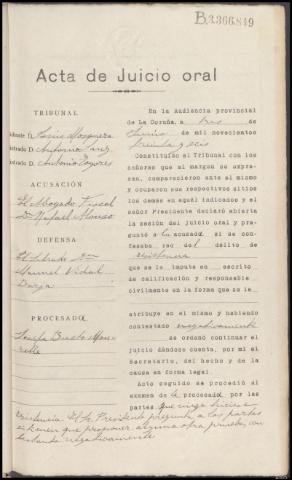 B.3.366.849
Acta de Juicio oral
TRIBUNAL
sidente D. Mosquera
istrado D. Antonio
istrado D. Antonio
ACUSACIÓN
El Abogado Fiscal
D. Rafael Alonso
DEFENSA
El Letrado Don
Manuel Vidal
PROCESADO
Josefa
En la Audiencia provincial
de La Coruña, a tres de
Junio de mil novecientos
treinta y seis
Constituído el Tribunal con los
señores que al margen se expre-
san, comparecieron ante el mismo
y ocuparon sus respectivos sitios
los demás en aquél indicados y el
señor Presidente declaró abierta
la sesión del juicio oral y pre-
guntó a la acusada si se con-
fesaba reo del delito de
resistencia
que se le imputa en escrito
de calificación y responsable
civilmente en la forma que se le
atribuye en el mismo y habiendo
contestado negativamente
se ordenó continuar el
juicio dándose cuenta, por mi el
Secretario, del hecho y de la
causa en forma legal.
Acto seguido se procedió al
examen de la procesada, por las
partes, que niega hiciese
resistencia. El Sr. Presidente pregunta a las partes
si tienen que proponer alguna otra prueba, con-
testando negativamente